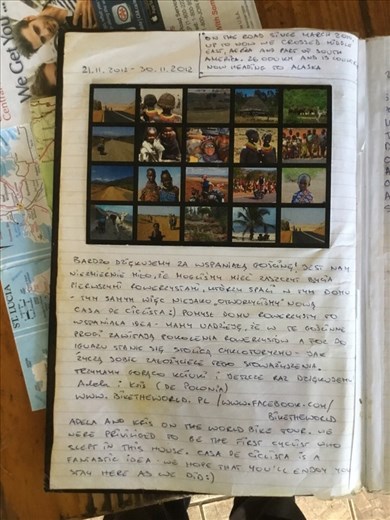 We Get You...
Centra
ST. LUCIA
ON THE ROAD SINCE MARCH
UP TO NOW WE CROSSED MIDDLE
EAST, AFRICA AND PART OF SOUTH
AMERICA. 26 000 KM AND 15
NOW HEADING TO ALASKA
21.11.2012 - 30.11.2012
BARDZO DZIĘKUJEMY ZA WSPANIAŁĄ GOŚCINĘ! JEST NAM
NIEZMIERNIE MIŁO, ŻE MOGLIŚMY MIEĆ ZASZCZYT BYCIA
PIERWSZYMI ROWERZYSTAMI, KTÓRZY SPALI W TYM DOMU
- TYM SAMYM WIĘC NIEJAKO „OTWORZYLIŚMY" NOWĄ
CASA DE CICLISTA :) POMYSŁ DOMU ROWERZYSTY TO
WSPANIAŁA IDEA - MAMY NADZIEJĘ, ŻE W TE GOŚCINNE
PROGI ZAWITAJĄ POKOLENIA ROWERZYSTÓW A FOZ DO
IGUAÇU STANIE SIĘ STOLICĄ - JAK
ŻYCZĄ SOBIE ZAŁOŻYCIELE TEGO STOWARZYSZENIA.
TRZYMAMY GORĄCO KCIUKI I JESZCZE RAZ DZIĘKUJEMY
Adela i Kris (DE POLONIA)
WWW.BIKETHEWORLD.PL / WWW.FACEBOOK.COM/
BIKETHEWORLD
ADELA AND KRIS ON THE WORLD BIKE TOUR. WE
WERE PRIVILIGED TO BE THE FIRST CYCLIST WHO
SLEPT IN THIS HOUSE. CASA DE CICLISTA IS A
FANTASTIC IDEA - WE HOPE THAT YOU'LL ENJOY YOUR
STAY HERE AS WE DID :)